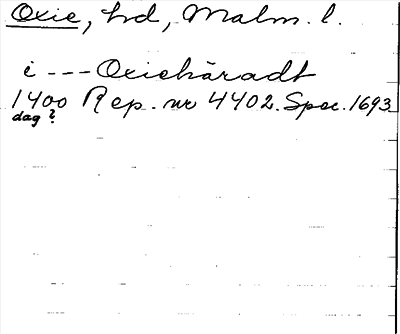 Oxie, hd, Malm. l.
i --- Oxiehäradt
1400 Rep. nr 4402. Spec. 1693
dag ?